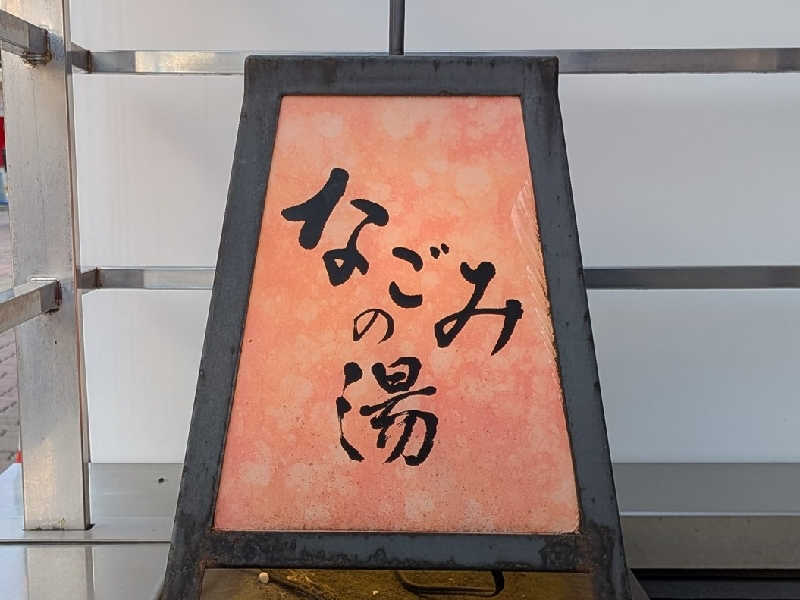 なごみ
の
湯